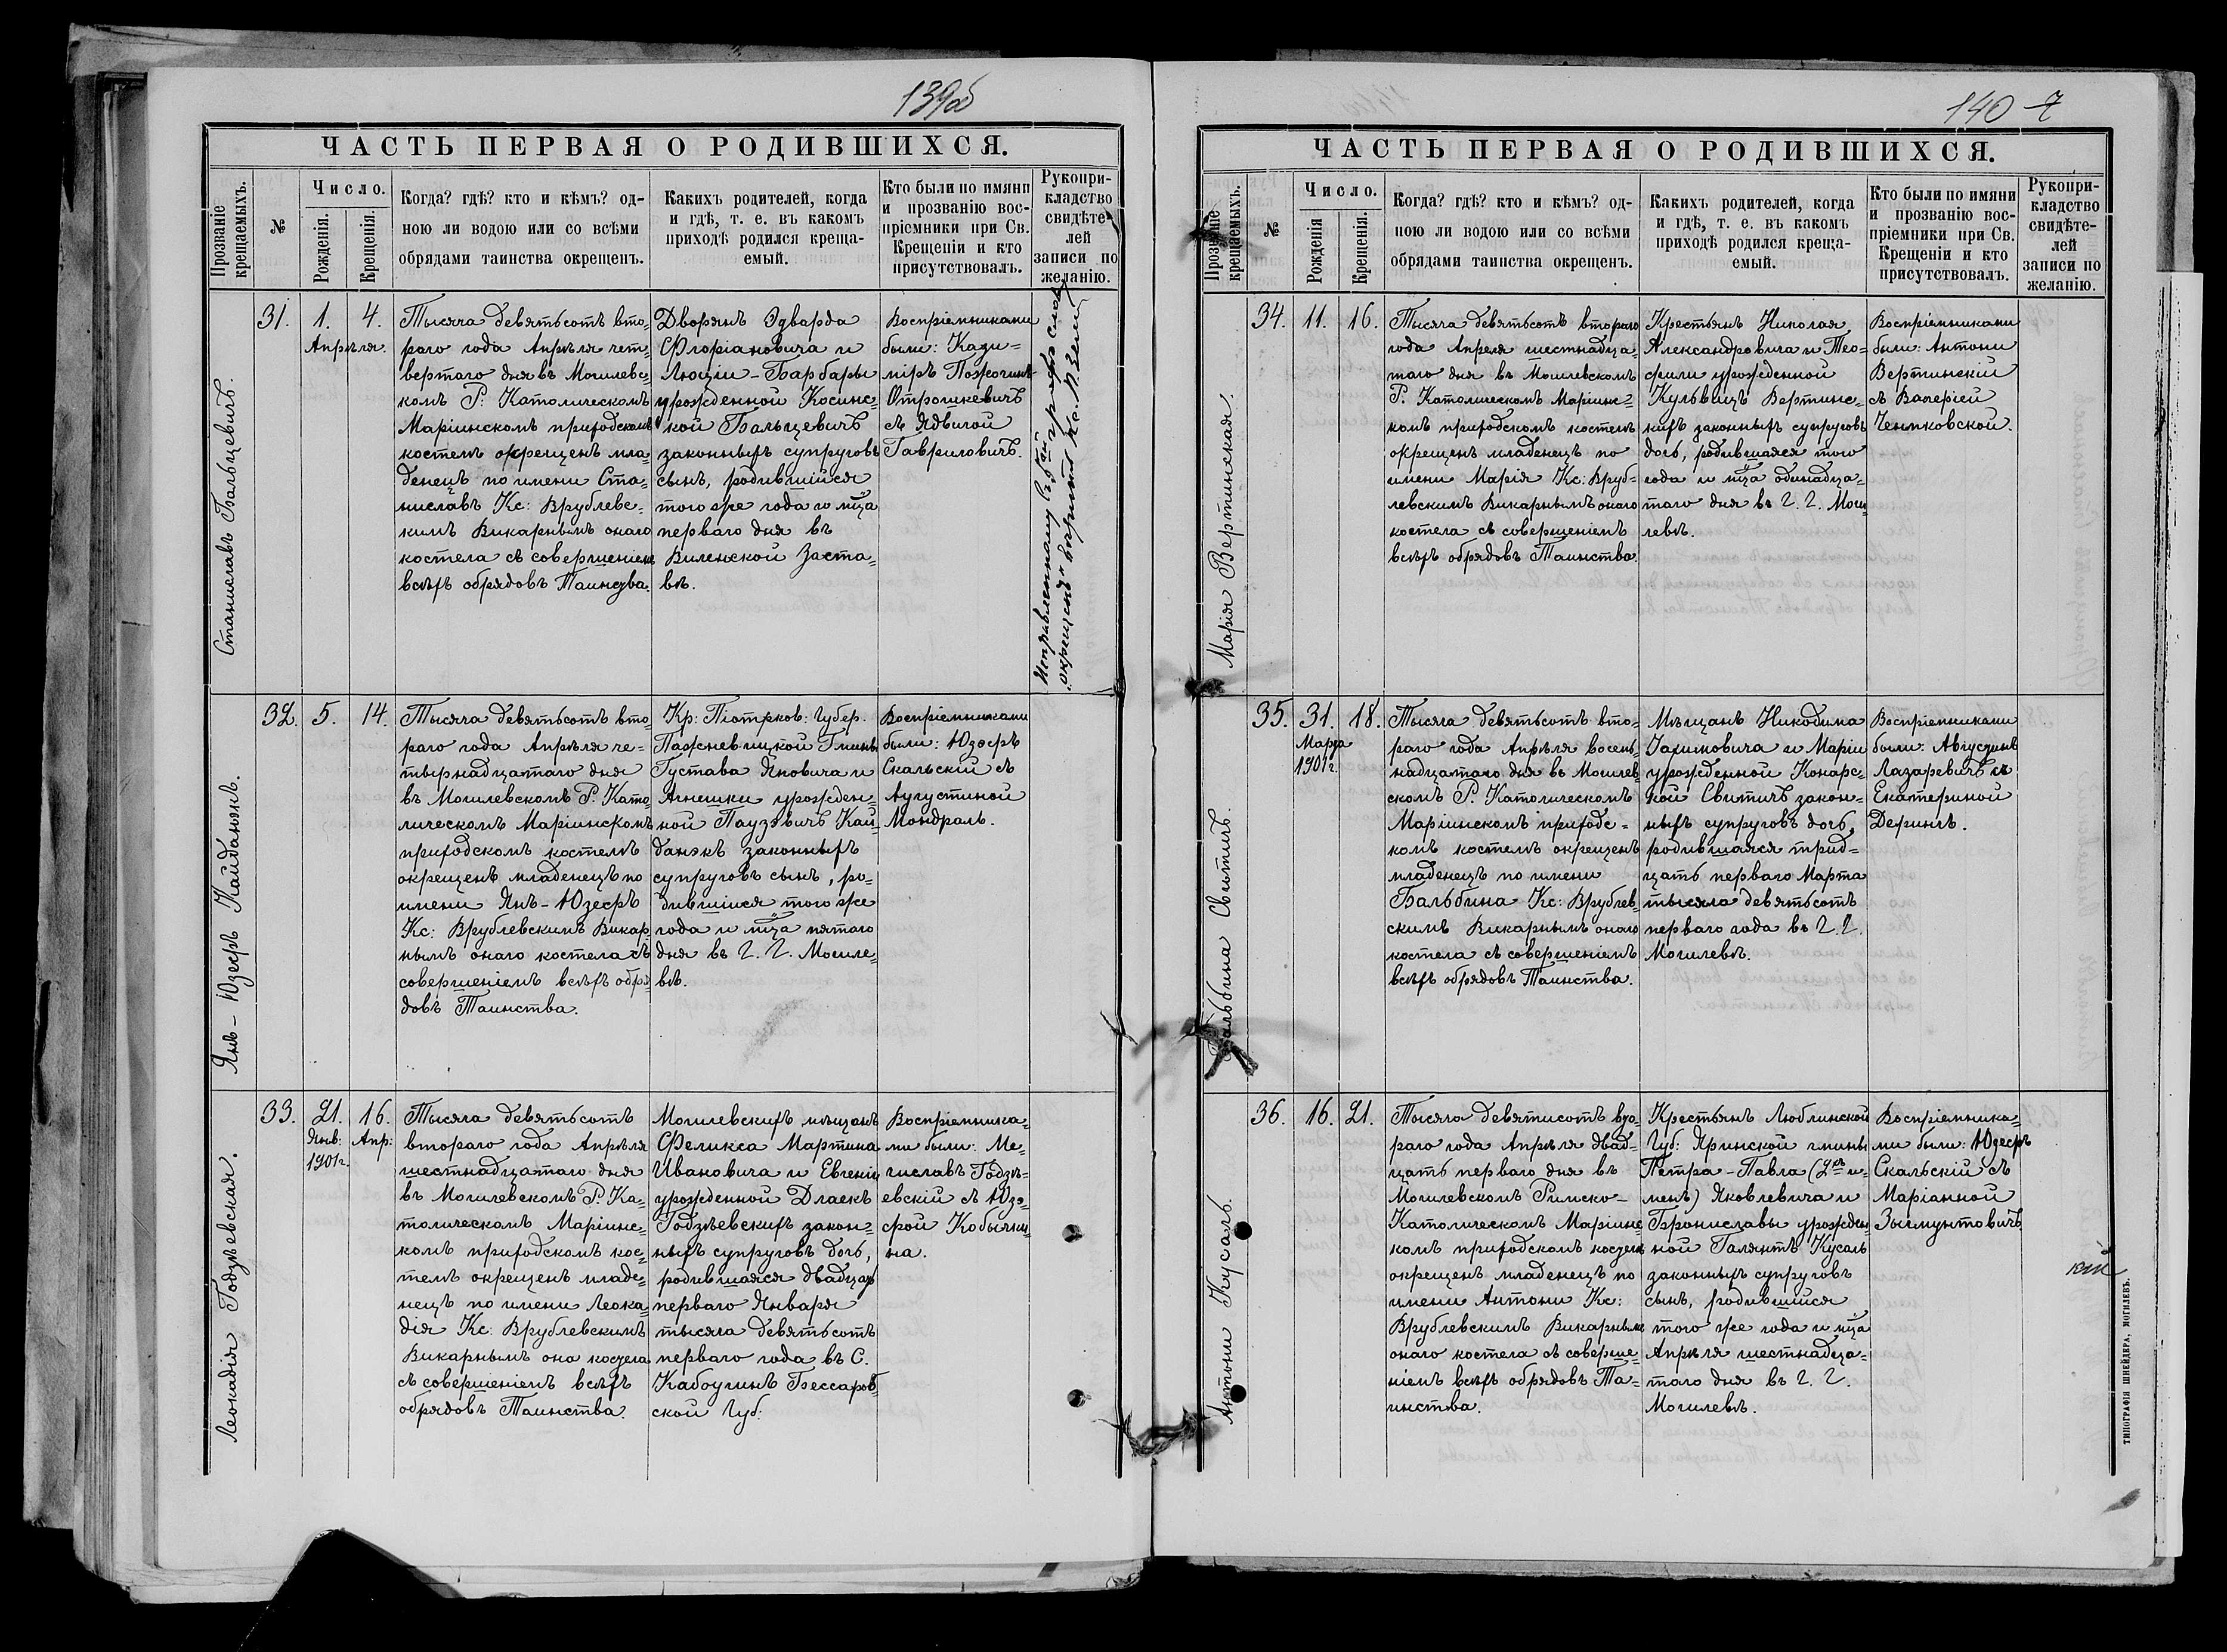 139об
ЧАСТЬ ПЕРВАЯ О РОДИВШИХСЯ.
Прозваніе крещаемыхъ.
№
Число.
Рожденія.
Крещенія.
Когда? гдѣ? кто и кѣмъ? од-
ною ли водою или со всѣми
обрядами таинства окрещенъ.
Какихъ родителей, когда
и гдѣ, т. е. въ какомъ
приходѣ родился креща-
емый.
Кто были по имяни
и прозванію вос-
пріемники при Св.
Крещеніи и кто
присутствовалъ.
Рукопри-
кладство
свидѣте-
лей
записи по
желанію.
Станиславъ Бальцевичъ.
31.
1.
4.
Апрѣля.
Тысяча девятьсотъ вто-
раго года Апрѣля чет-
вертаго дня въ Могилевс-
комъ Р. Католическомъ
Маріинскомъ приходскомъ
костелѣ окрещенъ мла-
денецъ по имени Ста-
ниславъ Кс: Врублевс-
кимъ Викарнымъ онаго
костела съ совершеніемъ
всѣхъ обрядовъ Таинства.
Дворянъ Эдварда
Флоріановича и
Люціи-Барбары
урожденной Косинс-
кой Бальцевичъ
законныхъ супруговъ
сынъ, родившійся
того же года и мѣца
перваго дня въ
Виленской Заста-
вѣ.
Воспріемниками
были: Кази-
міръ
Отрошкевичъ
съ Ядвигой
Гавриловичъ.
Исправленному сверхъ слову
"окрещенъ" вѣрить Кс.
32.
5.
14.
Янъ-Юзефъ Кайданэкъ.
Тысяча девятьсотъ вто-
раго года Апрѣля че-
тырнадцатаго дня
въ Могилевскомъ Р. Като-
лическомъ Маріинскомъ
приходскомъ костелѣ
окрещенъ младенецъ по
имени Янъ-Юзефъ
Кс: Врублевскимъ Викар-
нымъ онаго костела съ
совершеніемъ всѣхъ обря-
довъ Таинства.
Кр: Піотрков: Губер.
Пажневицкой Гмины
Густава Яновича и
Агнешки урожден-
ной Паузэвичъ Кай-
данэкъ законныхъ
супруговъ сынъ, ро-
дившійся того же
года и мѣца пятаго
дня въ Г. Г. Могиле-
вѣ.
Воспріемниками
были: Юзефъ
Скальскій съ
Аугустиной
Мондраль.
33.
21.
16.
Янв:
Апр:
1901г.
Леокадія Годзѣевская.
Тысяча девятьсотъ
втораго года Апрѣля
шестнадцатаго дня
въ Могилевскомъ Р. Ка-
толическомъ Маріинс-
комъ приходскомъ кос-
телѣ окрещенъ младе-
нецъ по имени Леока-
дія Кс: Врублевскимъ
Викарнымъ она костела
съ совершеніемъ всѣхъ
обрядовъ Таинства.
Могилевскихъ мѣщанъ
Феликса Мартина
Ивановича и Евгеніи
урожденной Длаекъ
Годзѣевскихъ закон-
ныхъ супруговъ дочь,
родившаяся двадцать
перваго Января
тысяча девятьсотъ
перваго года въ С.
Кабоугинѣ Бессараб-
ской Губ:
Воспріемника-
ми были: Ме-
числавъ Годзѣ-
евскій съ Юзэ-
фой Кобычки-
на.
140
7
ЧАСТЬ ПЕРВАЯ О РОДИВШИХСЯ.
Прозваніе крещаемыхъ.
№
Число.
Рожденія
Крещенія.
Когда? гдѣ? кто и кѣмъ? од-
ною ли водою или со всѣми
обрядами таинства окрещенъ.
Какихъ родителей, когда
и гдѣ, т. е. въ какомъ
приходѣ родился креща-
емый.
Кто были по имяни
и прозванію вос-
пріемники при Св.
Крещеніи и кто
присутствовалъ.
Рукопри-
кладство
свидѣте-
лей
записи по
желанію.
34.
11.
16.
Марія Вертинская.
Тысяча девятьсотъ втораго
года Апреля шестнадца-
таго дня въ Могилевскомъ
Р. Католическомъ Маріинс-
комъ приходскомъ костелѣ
окрещенъ младенецъ по
имени Марія Кс: Вруб-
левскимъ Викарнымъ онаго
костела съ совершеніемъ
всѣхъ обрядовъ Таинства.
Крестьянъ Николая
Александровича и Тео-
фили урожденной
Кульвицъ Вертинс-
кихъ законныхъ супруговъ
дочь, родившаяся того
года и мѣца одинадца-
таго дня въ Г. Г. Моги-
левѣ.
Воспріемниками
были: Антони
Вертинскій
съ Валеріей
Ченпковской.
35.
31.
18.
Марта
1901г.
Бальбина Свитичъ.
Тысяча девятьсотъ вто-
раго года Апрѣля восем-
надцатаго дня въ Могилев-
скомъ Р. Католическомъ
Маріинскомъ приходс-
комъ костелѣ окрещенъ
младенецъ по имени
Бальбина Кс: Врублев-
скимъ Викарнымъ онаго
костела съ совершеніемъ
всѣхъ обрядовъ Таинства.
Мѣщанъ Никодима
Іахимовича и Маріи
урожденной Конарс-
кой Свитичъ закон-
ныхъ супруговъ дочь,
родившаяся трид-
цать перваго Марта
тысяча девятьсотъ
перваго года въ Г. Г.
Могилевѣ.
Воспріемниками
были: Августинъ
Лазаревичъ съ
Екатериной
Дерингъ.
36.
16.
21.
Антони Кусаль.
Тысяча девятисотъ вто-
раго года Апрѣля двад-
цать перваго дня въ
Могилевскомъ Римско-
Католическомъ Маріинс
комъ приходскомъ костелѣ
окрещенъ младенецъ по
имени Антони Кс:
Врублевскимъ Викарнымъ
онаго костела съ соверше-
ніемъ всѣхъ обрядовъ Та-
инства.
Крестьянъ Люблинской
Губ: Яринской гмины
Петра-Павла (2хъ и-
менъ) Яковлевича и
Брониславы урожден
ной Галянтъ Кусаль
законныхъ супруговъ
сынъ, родившійся
того же года и мѣца
Апрѣля шестнадца-
таго дня въ Г. Г.
Могилевѣ.
Воспріемника-
ми были: Юзефъ
Скальскій съ
Маріанной
Зыгмунтовичъ.
ТИПОГРАФІЯ ШНЕЙДЕРА, МОГИЛЕВЪ.